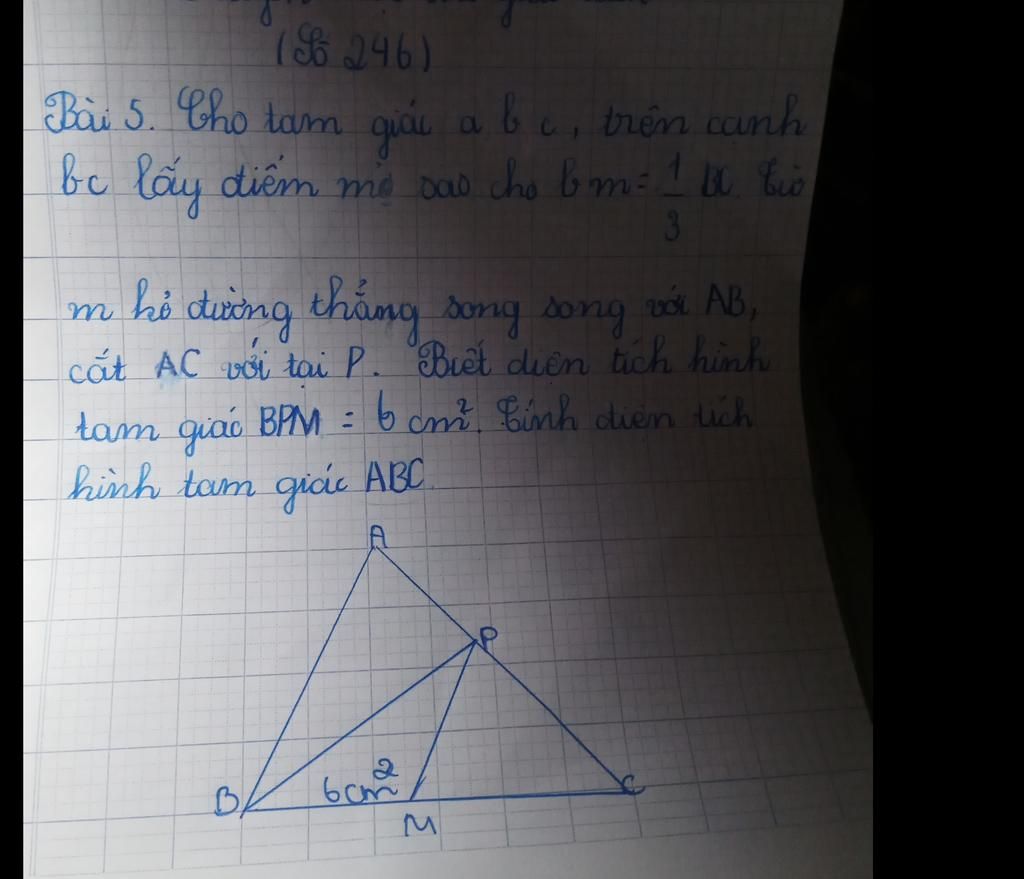 (Số 246)
Bài 5. Cho tam giác a b c, trên cạnh
bc lấy điểm m sao cho b m = 1/3 bc. Từ
m kẻ đường thẳng song song với AB,
cắt AC với tại P. Biết diện tích hình
tam giác BPM = 6 cm². Tính diện tích
hình tam giác ABC.
A
P
6cm²
B
C
M